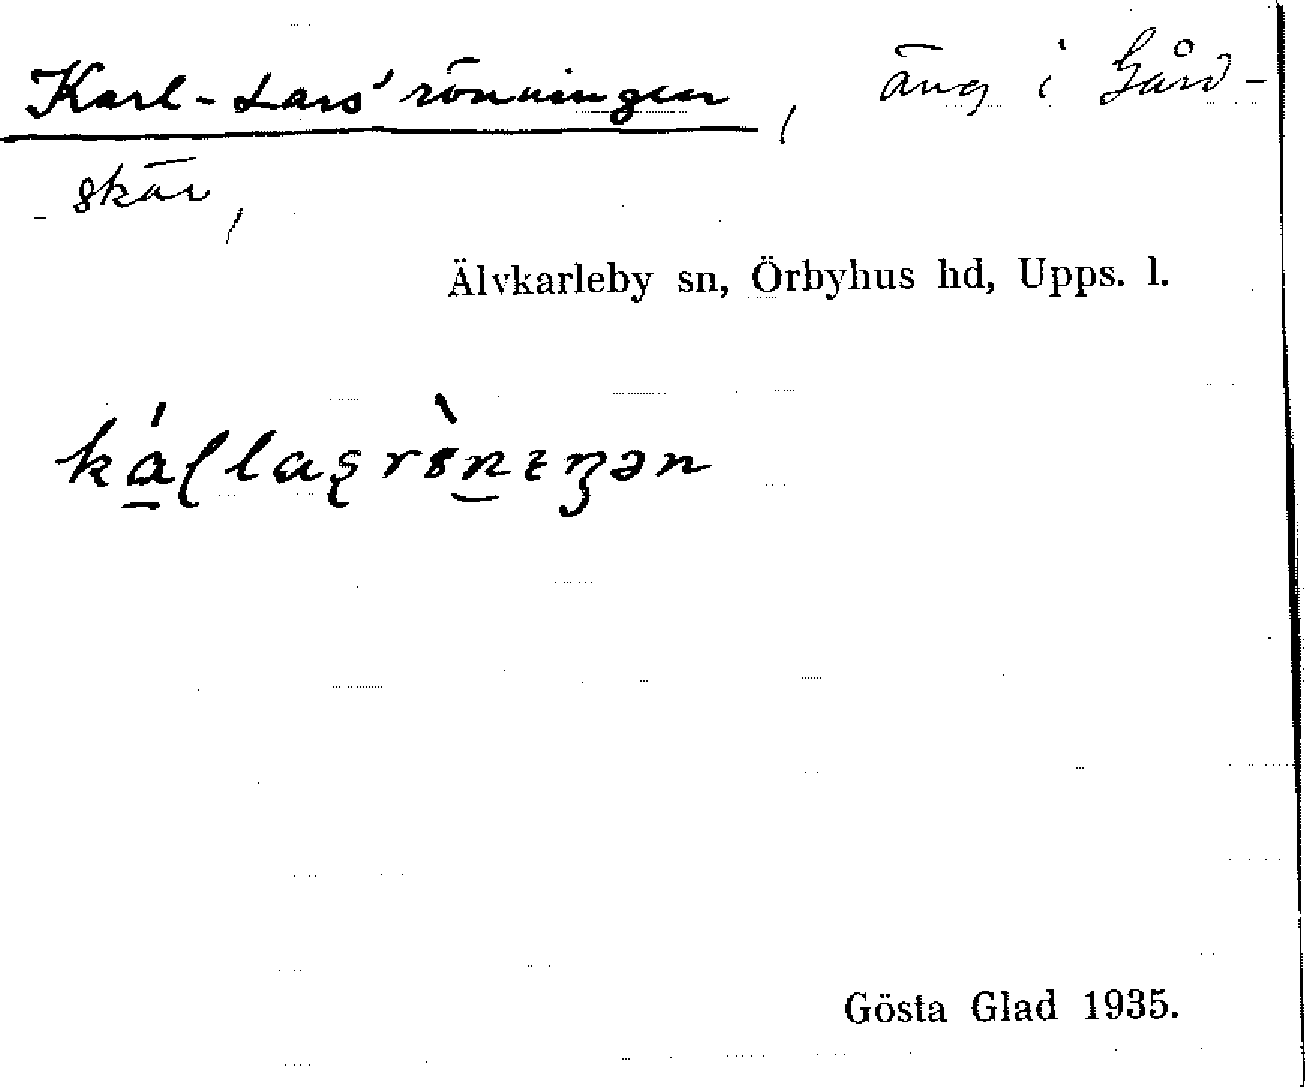 Karl-Lars' rönningen, äng i Gård-
skär,
Älvkarleby sn, Örbyhus hd, Upps. l.
Gösta Glad 1935.